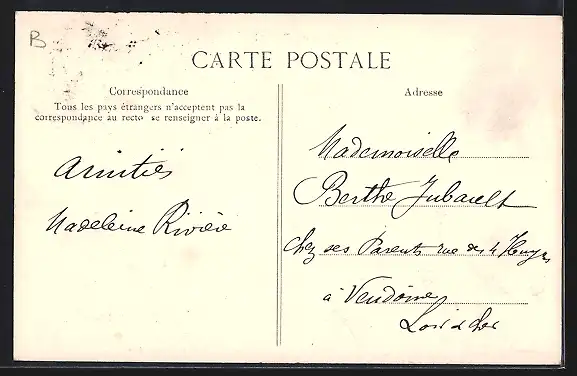 B
CARTE POSTALE
Correspondance
Tous les pays étrangers n'acceptent pas la
correspondance au recto se renseigner à la poste.
Amitiés
Madeleine Rivière
Adresse
Mademoiselle
Berthe Jubault
chez ses Parents rue des 4 Huyes
à Vendôme
Loir & Cher